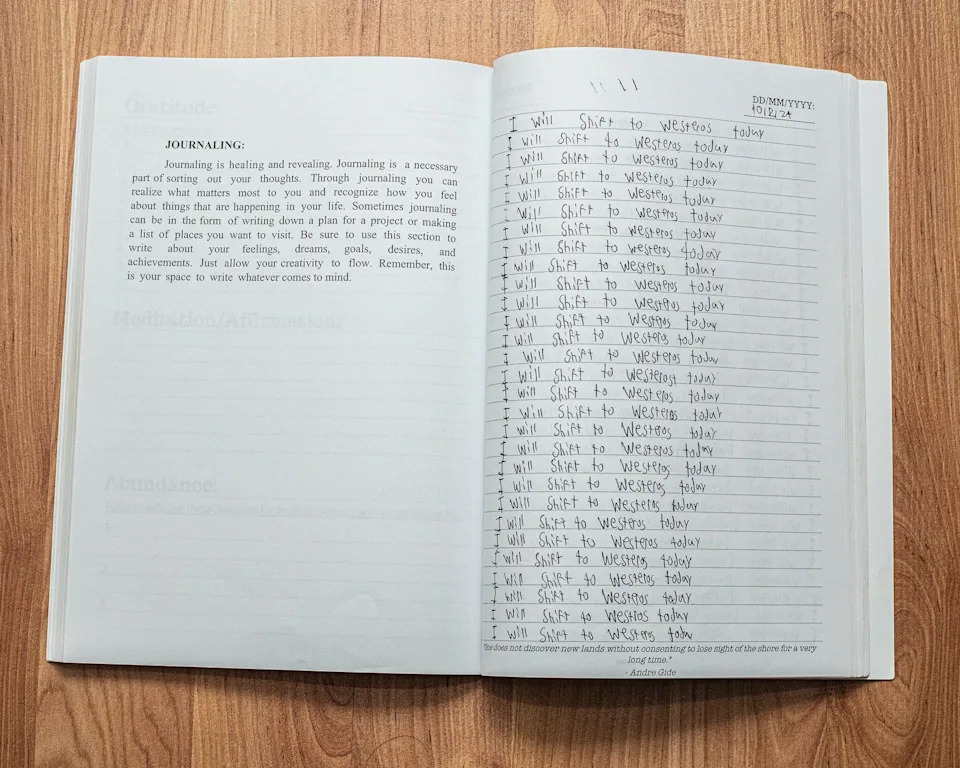 JOURNALING:
Journaling is healing and revealing. Journaling is a necessary
part of sorting out your thoughts. Through journaling you can
realize what matters most to you and recognize how you feel
about things that are happening in your life. Sometimes journaling
can be in the form of writing down a plan for a project or making
a list of places you want to visit. Be sure to use this section to
write about your feelings, dreams, goals, desires, and
achievements. Just allow your creativity to flow. Remember, this
is your space to write whatever comes to mind.
Gratitude:
Meditation/Affirmation:
Abundance:
11 11
DD/MM/YYYY:
I will Shift to westeros today
I will Shift to westeros today
I will Shift to westeros today
I will Shift to westeros today
I will Shift to westeros today
I will Shift to westeros today
I will Shift to westeros today
I will Shift to westeros today
I will Shift to westeros today
I will Shift to westeros today
I will Shift to westeros today
I will Shift to westeros today
I will Shift to westeros today
I will Shift to westeros today
I will Shift to westerost today
I will Shift to westeros today
I will Shift to westeros today
I will Shift to westeros today
I will Shift to westeros today
I will Shift to westeros today
I will Shift to westeros today
I will Shift to westeros today
I will Shift to westeros today
I will Shift to westeros today
I will Shift to westeros today
I will Shift to westeros today
I will Shift to westeros today
I will Shift to westros today
I will Shift to westeros today
"One does not discover new lands without consenting to lose sight of the shore for a very
long time."
- Andre Gide